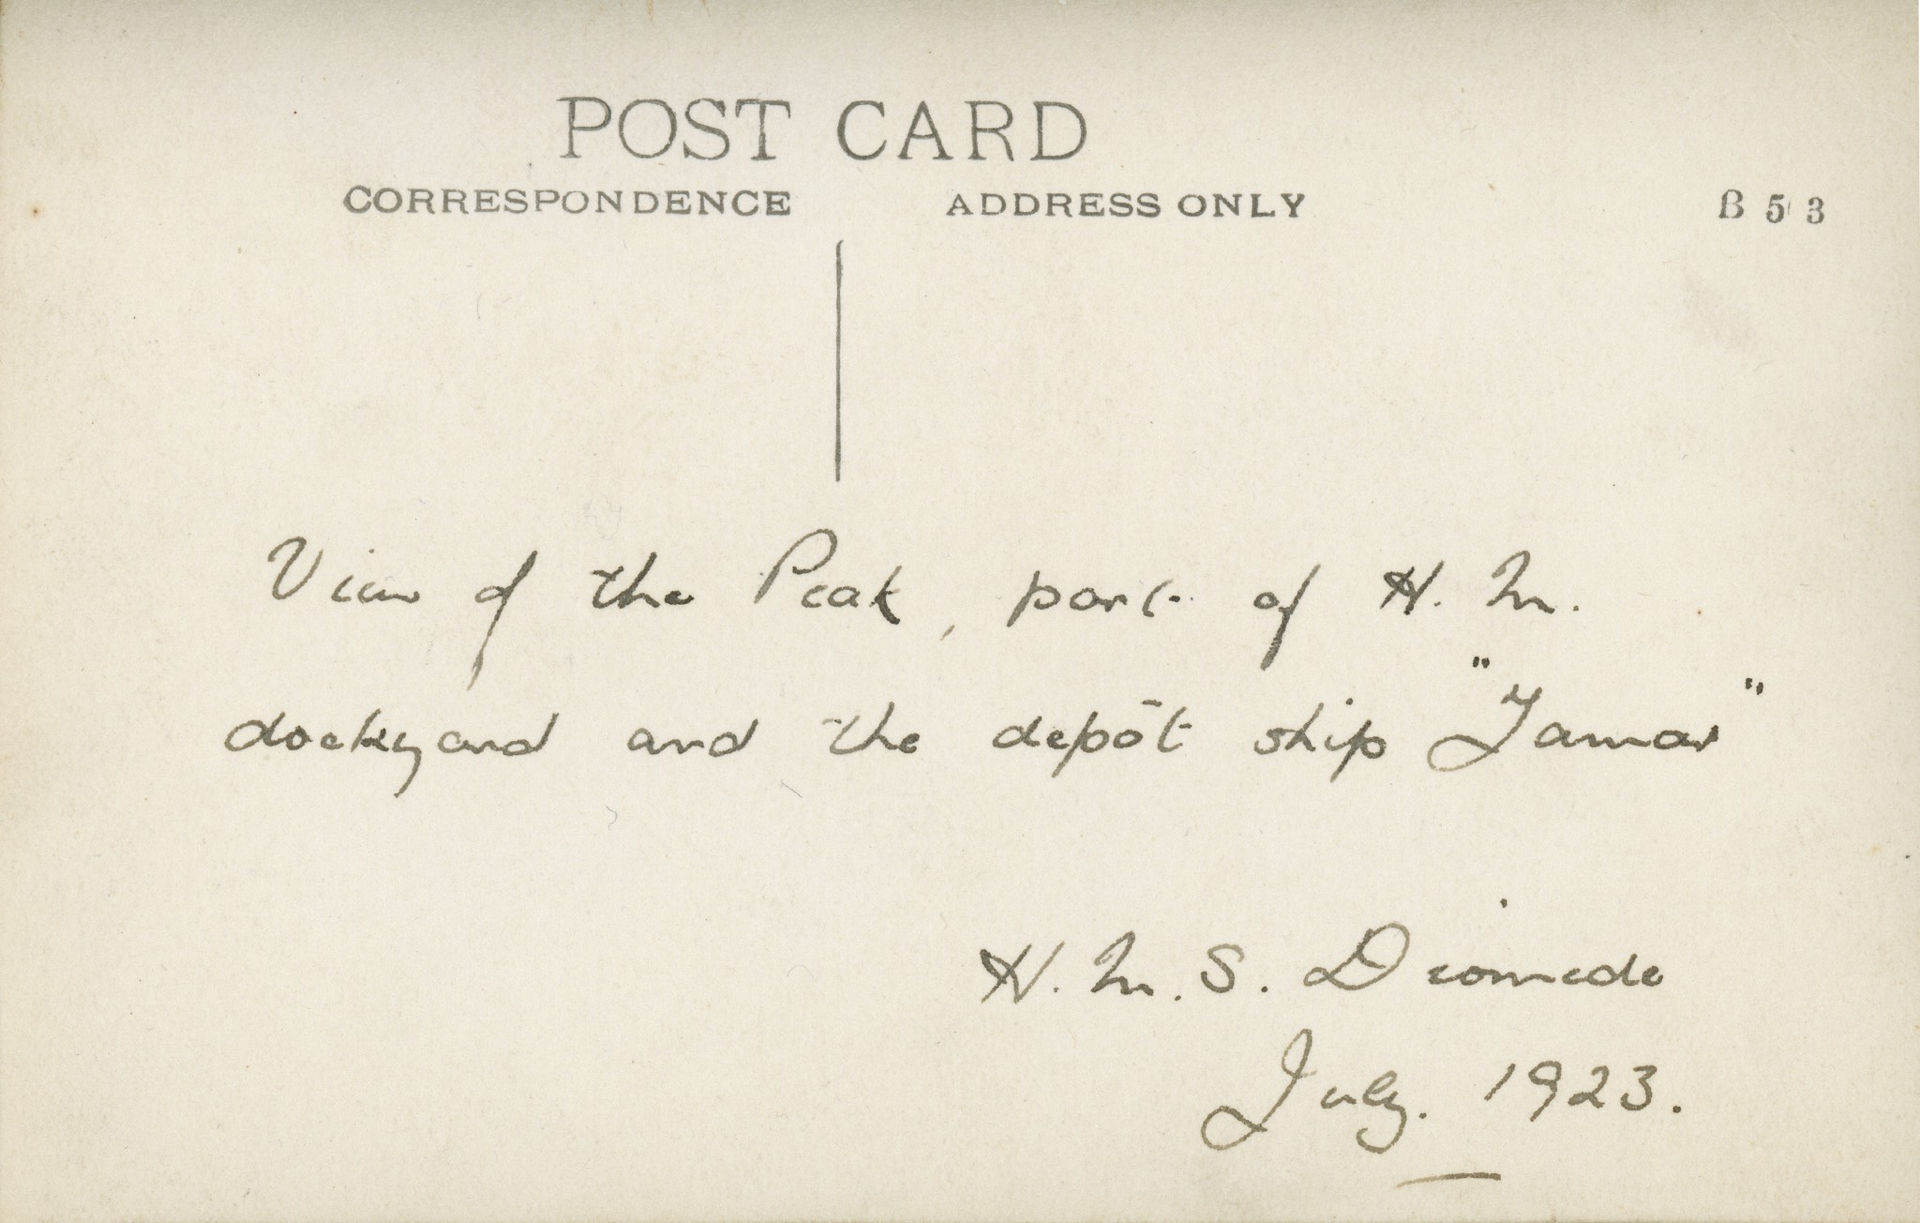 POST CARD
CORRESPONDENCE ADDRESS ONLY B 53
View of the Peak, part of H. M.
dockyard and the depôt ship "Tamar"
H. M. S. Diomede
July. 1923.